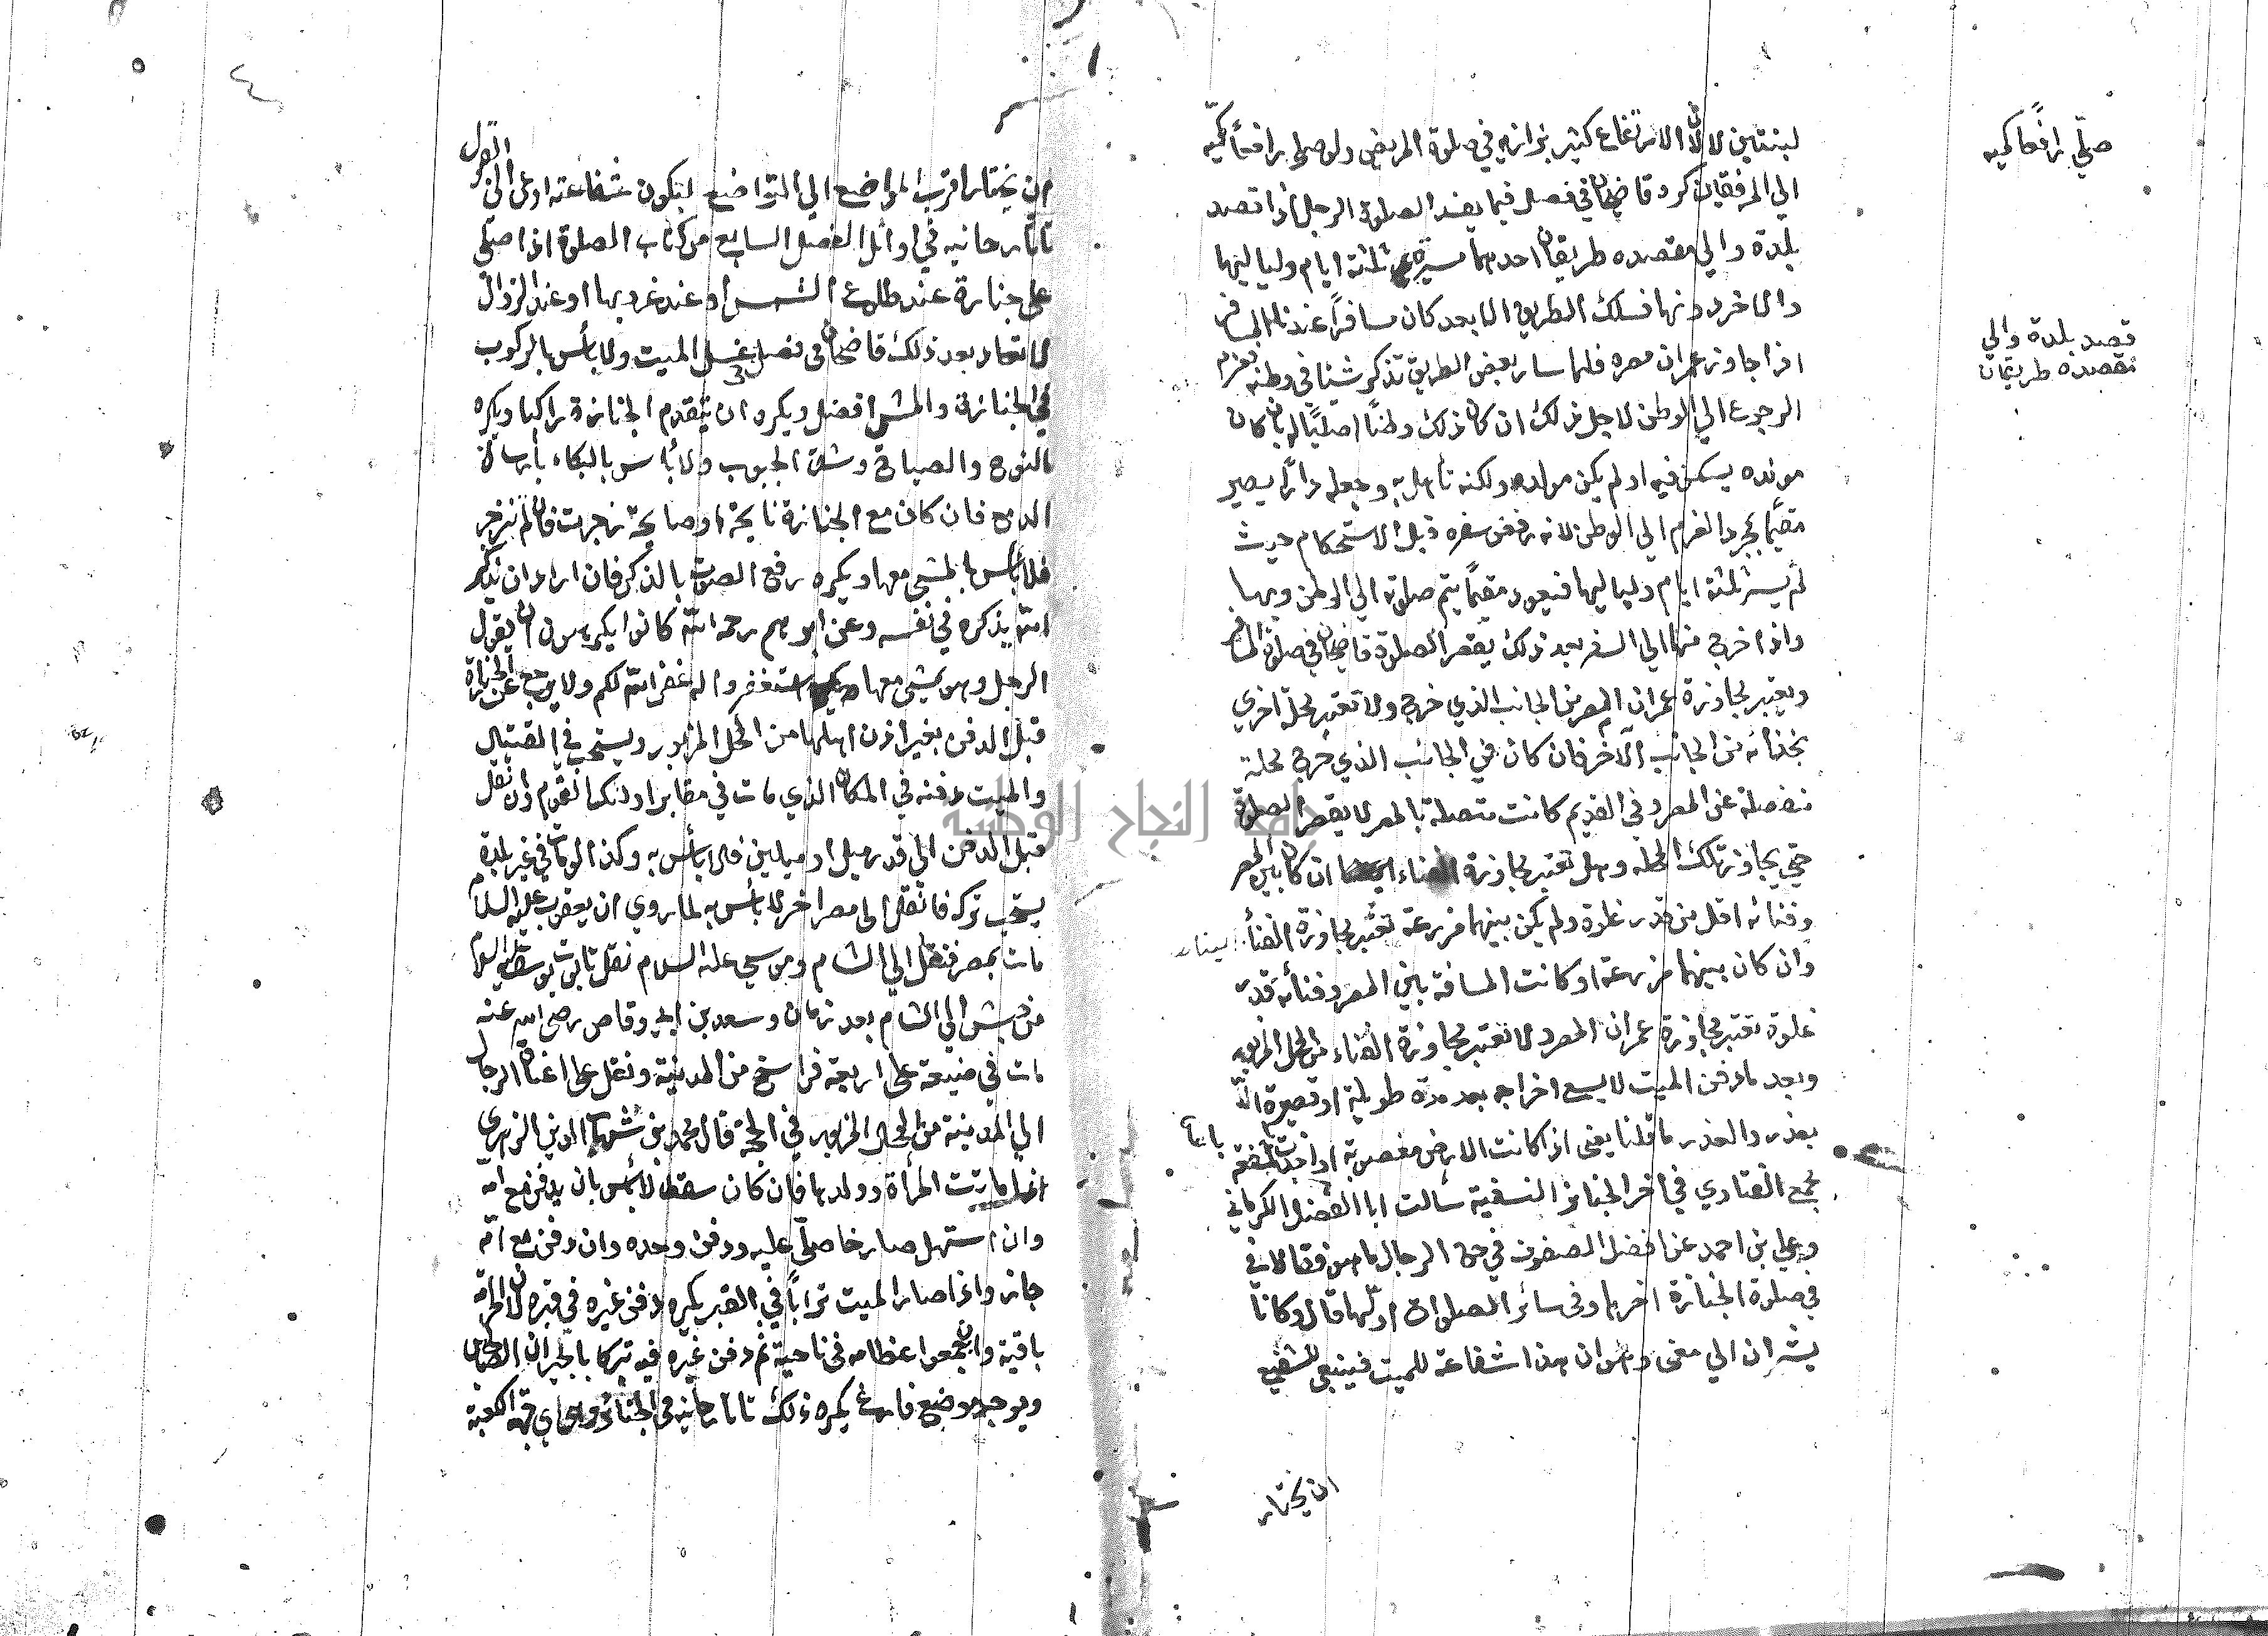 لبنتين لا لأن الارتفاع كثير بزازيه في صلوة المريض ولو صلى رافعاً كميّه
الي المرفقين كره قاضيخان في فصل فيما يفسد الصلوة الرجل اذا قصد
بلدة والي مقصده طريقان احدهما مسيرة ثلثة ايام ولياليها
والاخر دونها فسلك الطريق الابعد كان مسافراً عندنا المسافر
اذا جاوز عمران مصره فلما سار بعض الطريق تذكر شيئا في وطنه فعزم
الرجوع الي الوطن لاجل ذلك ان كان ذلك وطناً اصليًا له بان كان
مولده يسكن فيه او لم يكن مولده ولكنه تأهل به وجعله داراً يصير
مقيمًا بمجرد العزم الي الوطن لانه رفض سفره قبل الاستحكام حيث
لم يسر ثلثة ايام ولياليها فيعود مقيمًا يتم صلوته الي الوطن وبها
واذا خرج منها الي السفر بعد ذلك يقصر الصلوة قاضيخان في صلوة المسافر
ويعتبر مجاوزة عمران المصر من الجانب الذي خرج ولا تعتبر محلة اخري
بحذائه من الجانب الآخر فان كان في الجانب الذي خرج محلة
منفصلة عن المصر وفي القديم كانت متصلة بالمصر لا يقصر الصلوة
حتي يجاوز تلك المحله وهل تعتبر مجاوزة الفناء ان كان بين المصر
وفنائه اقل من قدر غلوة ولم يكن بينهما مزرعة تعتبر مجاوزة الفناء
وان كان بينهما مزرعة او كانت المسافة بين المصر وفنائه قدر
غلوة تعتبر مجاوزة عمران المصر ولا تعتبر مجاوزة الفناء من المحل المزبور
وبعد ما دفن الميت لا يسع اخراجه بعد مدة طويلة او قصيرة الّا
بعذر والعذر ما قلنا يعني اذا كانت الارض مغصوبة او اخذت بالشفعة
مجمع الفتاوي في اخر الجنائز النسفية سألت ابا الفضل الكرماني
وعلي بن احمد عن افضل الصفوف في حق الرجال ما هو فقالا
في صلوة الجنازة اخرها وفي سائر الصلوات اولها قال وكانا
يشران الي معنى وهو ان هذا شفاعة للميت فينبغي للشفيع
ان يختار
صلّي رافعًا كميه
قصد بلدة والي
مقصده طريقان
ان يختار اقرب المواضع الي التواضع لتكون شفاعته ادعى الي القبول
تاتارخانيه في اوائل الفصل السابع من كتاب الصلوة اذا صلّي
على جنازة عند طلوع الشمس او عند غروبها او عند الزوال
لا تعاد بعد ذلك قاضيخان في فصل غسل الميت ولا بأس بالركوب
في الجنازة والمشي افضل ويكره ان يتقدم الجنازة راكبا ويكره
النوح والصياح وشق الجيوب ولا بأس بالبكاء بأرسال
الدمع فان كان مع الجنازة نايحة او صايحة زجرت فان لم تنزجر
فلا بأس بالمشي معها ويكره رفع الصوت بالذكر فان اراد ان يذكر
الله يذكره في نفسه وعن ابرهيم رحمه الله كانوا يكرهون ان يقول
الرجل وهو يمشي معها استغفروا له غفر الله لكم ولا يرجع عن الجنازة
قبل الدفن بغير اذن اهلها من المحل المزبور ويستحب في القتيل
والميت دفنه في المكان الذي مات في مقابر اولئك القوم وان نقل
قبل الدفن الي قدر ميل او ميلين فلا بأس به وكذا لو مات في غير بلدة
يستحب تركه فان نقل الى مصر اخر لا بأس به لما روي ان يعقوب عليه السلام
مات بمصر فنقل الي الشام وموسي عليه السلام نقل تابوت يوسف عليه السلام
الي الشام بعد زمان وسعد بن ابي وقاص رضي الله عنه
مات في ضيعة على اربعة فراسخ من المدينة ونقل على اعناق الرجال
الي المدينة من المحل المزبور في الحجة قال محمد بن شهاب الدين الزهري
اذا ماتت المرأة وولدها فان كان سقطا لا بأس بان يدفن مع امه
وان استهل صارخا صلّي عليه ودفن وحده وان دفن مع امّه
جاز واذا صار الميت تراباً في القبر يكره دفن غيره في قبره لان الحرمة
باقية وان جمعوا عظامه في ناحية ثم دفن غيره فيه تبركا بالجيران الصالحين
ويوجد موضع فارغ يكره ذلك تاتارخانيه في الجنائز الكعبة
جامعة النجاح الوطنية